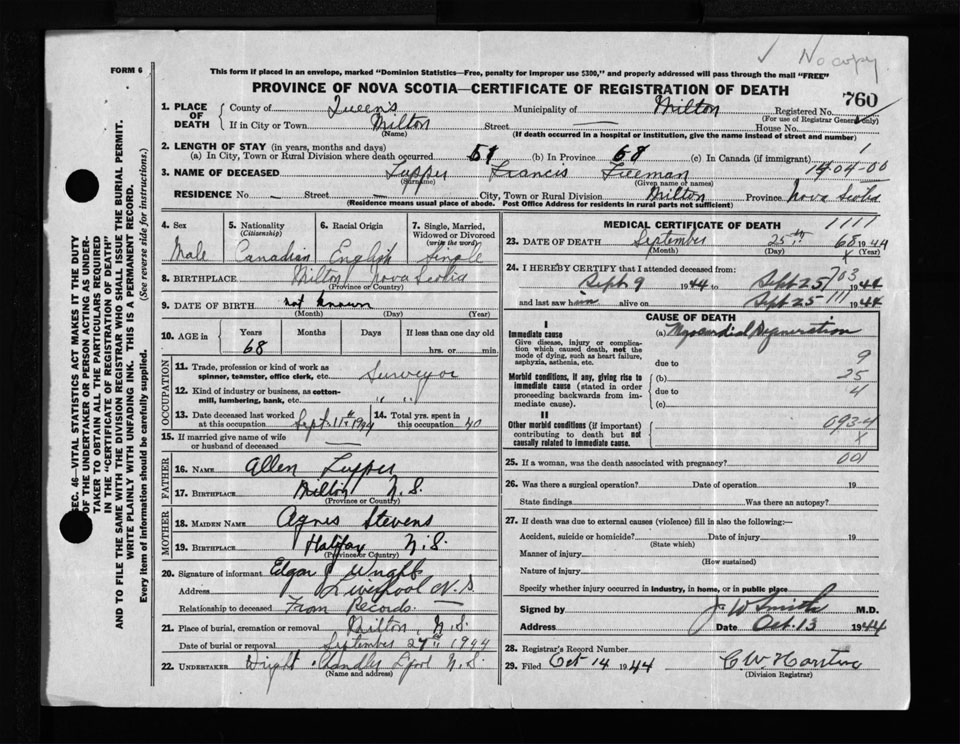 ✓ No copy
FORM 6
This form if placed in an envelope, marked "Dominion Statistics—Free, penalty for improper use $300," and properly addressed will pass through the mail "FREE"
PROVINCE OF NOVA SCOTIA—CERTIFICATE OF REGISTRATION OF DEATH
760
1. PLACE OF DEATH
County of Queen's Municipality of Milton Registered No.
(For use of Registrar General only)
If in City or Town Milton Street — House No.
(Name) (If death occurred in a hospital or institution, give the name instead of street and number)
2. LENGTH OF STAY (in years, months and days)
(a) In City, Town or Rural Division where death occurred (b) In Province 68 (c) In Canada (if immigrant) 1
3. NAME OF DECEASED Tupper Francis Freeman
(Surname) (Given name or names)
04-00
RESIDENCE No. — Street — City, Town or Rural Division Milton Province Nova Scotia
(Residence means usual place of abode. Post Office Address for residents in rural parts not sufficient)
4. Sex 5. Nationality 6. Racial Origin 7. Single, Married, Widowed or Divorced
(Citizenship) (write the word)
Male Canadian English Single
8. BIRTHPLACE Milton Nova Scotia
(Province or Country)
9. DATE OF BIRTH not known
(Month) (Day) (Year)
10. AGE in Years Months Days If less than one day old
68 hrs. or min.
OCCUPATION
11. Trade, profession or kind of work as spinner, teamster, office clerk, etc. Surveyor
12. Kind of industry or business, as cotton-mill, lumbering, bank, etc. " "
13. Date deceased last worked at this occupation Sept. 11th 1944 14. Total yrs. spent in this occupation 40
15. If married give name of wife or husband of deceased —
FATHER
16. NAME Allen Tupper
17. BIRTHPLACE Milton N.S.
(Province or Country)
MOTHER
18. MAIDEN NAME Agnes Stevens
19. BIRTHPLACE Halifax N.S.
(Province or Country)
20. Signature of informant Edgar Wright
Address Liverpool N.S
Relationship to deceased From Records. —
21. Place of burial, cremation or removal Milton N.S.
Date of burial or removal September 27th 1944
22. UNDERTAKER Wright Chandler L'pool N.S.
(Name and address)
MEDICAL CERTIFICATE OF DEATH 1111
23. DATE OF DEATH September 25th 1944
(Month) (Day) (Year)
68 x
24. I HEREBY CERTIFY that I attended deceased from:
Sept 9 1944 to Sept 25 1944
703
and last saw him alive on Sept 25 1944
111
CAUSE OF DEATH
I
Immediate cause (a) Myocardial Degeneration
Give disease, injury or complication which caused death, not the mode of dying, such as heart failure, asphyxia, asthenia, etc.
due to 9
Morbid conditions, if any, giving rise to immediate cause (stated in order proceeding backwards from immediate cause).
(b) 25
due to 4
(c)
II
Other morbid conditions (if important) contributing to death but not causally related to immediate cause.
093-4
x
25. If a woman, was the death associated with pregnancy? 001
26. Was there a surgical operation? Date of operation 19
State findings Was there an autopsy?
27. If death was due to external causes (violence) fill in also the following:—
Accident, suicide or homicide? Date of injury 19
(State which)
Manner of injury
(How sustained)
Nature of injury
Specify whether injury occurred in industry, in home, or in public place
Signed by J W Smith M.D.
Address Date Oct. 13 1944
28. Registrar's Record Number
29. Filed Oct 14 1944 C W.
(Division Registrar)
SEC. 46—VITAL STATISTICS ACT MAKES IT THE DUTY
OF THE UNDERTAKER OR PERSON ACTING AS UNDER-
TAKER TO OBTAIN ALL THE PARTICULARS REQUIRED
IN THE "CERTIFICATE OF REGISTRATION OF DEATH"
AND TO FILE THE SAME WITH THE DIVISION REGISTRAR WHO SHALL ISSUE THE BURIAL PERMIT.
WRITE PLAINLY WITH UNFADING INK. THIS IS A PERMANENT RECORD.
Every item of information should be carefully supplied. (See reverse side for instructions.)